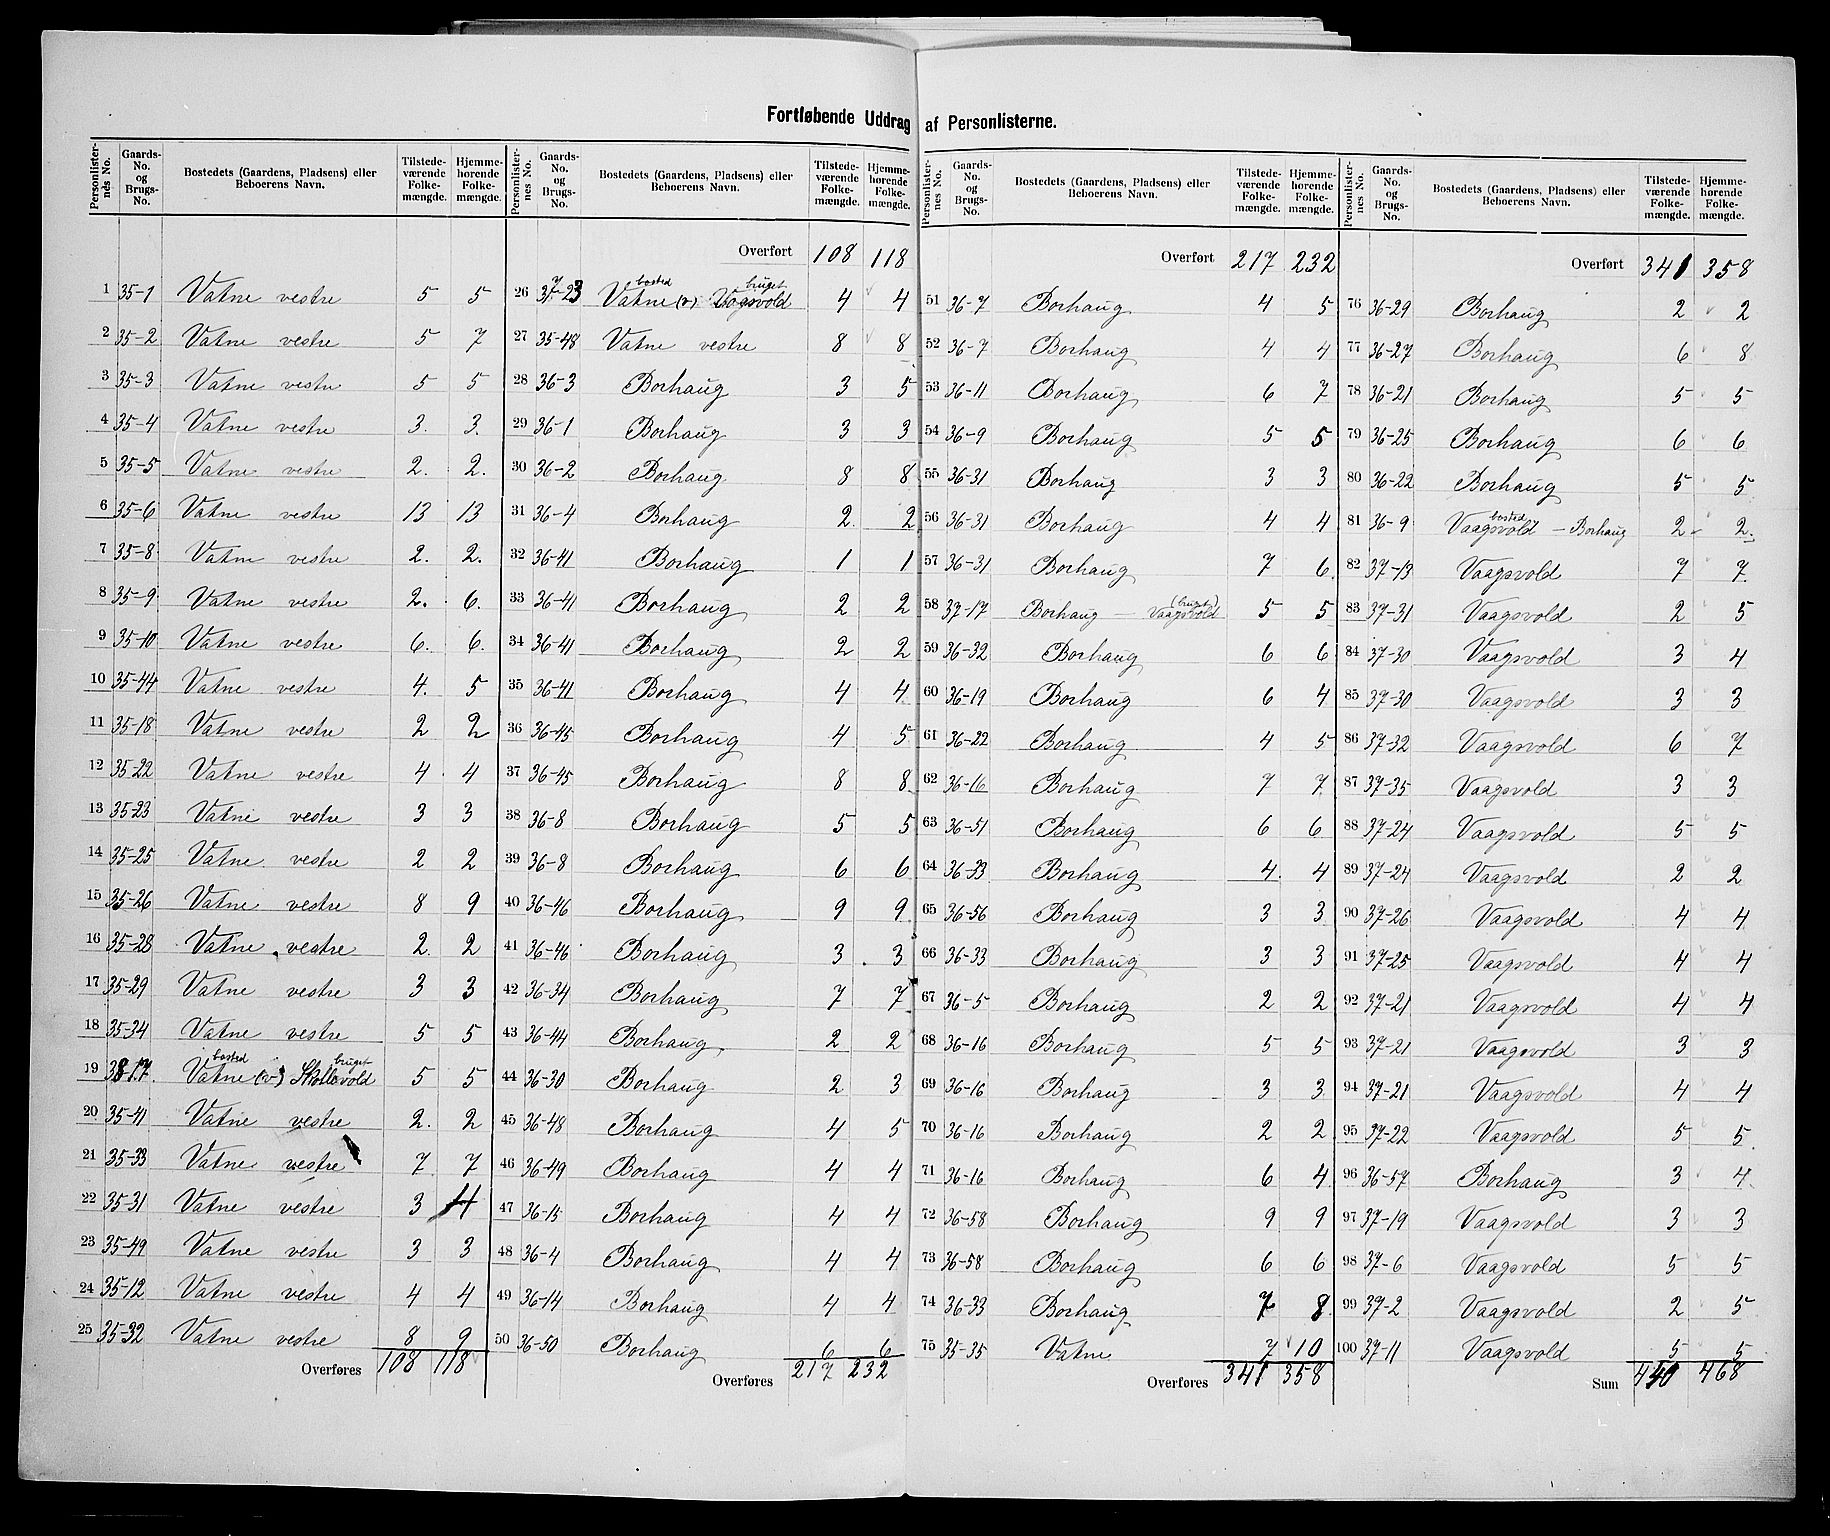 Fortløbende Uddrag af Personlisterne.
Personlister-nes No. | Gaards-No. og Brugs-No. | Bostedets (Gaardens, Pladsens) eller Beboerens Navn. | Tilstede-værende Folke-mængde. | Hjemme-hørende Folke-mængde.
1 35-1 Vatne vestre 5 5
2 35-2 Vatne vestre 5 7
3 35-3 Vatne vestre 5 5
4 35-4 Vatne vestre 3. 3.
5 35-5 Vatne vestre 2. 2.
6 35-6 Vatne vestre 13 13
7 35-8 Vatne vestre 2. 2.
8 35-9 Vatne vestre 2. 6.
9 35-10 Vatne vestre 6. 6.
10 35-44 Vatne vestre 4. 5
11 35-18 Vatne vestre 2 2
12 35-22 Vatne vestre 4 4
13 35-23 Vatne vestre 3 3
14 35-25 Vatne vestre 2 2
15 35-26 Vatne vestre 8 9
16 35-28 Vatne vestre 2 2
17 35-29 Vatne vestre 3 3
18 35-34 Vatne vestre 5 5
19 38-17. Vatne (v) bosted Skollevold bruget 5 5
20 35-41 Vatne vestre 2. 2
21 35-33 Vatne vestre 7 7
22 35-31 Vatne vestre 3 4
23 35-49 Vatne vestre 3 3
24 35-12 Vatne vestre 4 4
25 35-32 Vatne vestre 8 9
Overføres 108 118
Personlister-nes No. | Gaards-No. og Brugs-No. | Bostedets (Gaardens, Pladsens) eller Beboerens Navn. | Tilstede-værende Folke-mængde. | Hjemme-hørende Folke-mængde.
Overført 108 118
26 37-23 Vatne (v) bosted Vaagsvold bruget 4 4
27 35-48 Vatne vestre 8 8
28 36-3 Borhaug 3 5
29 36-1 Borhaug 3 3
30 36-2 Borhaug 8 8
31 36-4 Borhaug 2 2
32 36-41 Borhaug 1 1
33 36-41 Borhaug 2 2
34 36-41 Borhaug 2 2
35 36-41 Borhaug 4 4
36 36-45 Borhaug 4 5
37 36-45 Borhaug 8 8
38 36-8 Borhaug 5 5
39 36-8 Borhaug 6 6
40 36-46 Borhaug 9 9
41 36-46 Borhaug 3 3
42 36-34 Borhaug 7 7
43 36-44 Borhaug 2 2
44 36-30 Borhaug 2 3
45 36-48 Borhaug 4 5
46 36-49 Borhaug 4 4
47 36-15 Borhaug 4 4
48 36-4 Borhaug 4 4
49 36-14 Borhaug 4 4
50 36-50 Borhaug 6 6
Overføres 217 232
Personlister-nes No. | Gaards-No. og Brugs-No. | Bostedets (Gaardens, Pladsens) eller Beboerens Navn. | Tilstede-værende Folke-mængde. | Hjemme-hørende Folke-mængde.
Overført 217 232
51 36-7 Borhaug 4 5
52 36-7 Borhaug 4 4
53 36-11 Borhaug 6 7
54 36-9 Borhaug 5 5
55 36-31 Borhaug 3 3
56 36-31 Borhaug 4 4
57 36-31 Borhaug 7 6
58 37-17 Borhaug - Vaagsvold (bruget) 5 5
59 36-32 Borhaug 6 6
60 36-19 Borhaug 6 4
61 36-22 Borhaug 4 5
62 36-16 Borhaug 7 7
63 36-51 Borhaug 6 6
64 36-33 Borhaug 4. 4
65 36-56 Borhaug 3 3
66 36-33 Borhaug 3 3
67 36-5 Borhaug 2 2
68 36-16 Borhaug 5 5
69 36-16 Borhaug 3 3
70 36-16 Borhaug 2 2
71 36-16 Borhaug 6 4
72 36-58 Borhaug 9 9
73 36-58 Borhaug 6 6
74 36-33 Borhaug 7 8
75 35-35 Vatne 7 10
Overføres 341 358
Personlister-nes No. | Gaards-No. og Brugs-No. | Bostedets (Gaardens, Pladsens) eller Beboerens Navn. | Tilstede-værende Folke-mængde. | Hjemme-hørende Folke-mængde.
Overført 341 358
76 36-29 Borhaug 2 2
77 36-27 Borhaug 6 8
78 36-21 Borhaug 5 5
79 36-25 Borhaug 6 6
80 36-22 Borhaug 5 5
81 36-9 Vaagsvold bosted - Borhaug 2 2
82 37-13 Vaagsvold 7 7
83 37-31 Vaagsvold 2 5
84 37-30 Vaagsvold 3 4
85 37-30 Vaagsvold 3 3
86 37-32 Vaagsvold 6 7
87 37-35 Vaagsvold 3 3
88 37-24 Vaagsvold 5 5
89 37-24 Vaagsvold 2 2
90 37-26 Vaagsvold 4 4
91 37-25 Vaagsvold 4 4
92 37-21 Vaagsvold 4 4
93 37-21 Vaagsvold 3 3
94 37-21 Vaagsvold 4 4
95 37-22 Vaagsvold 5 5
96 36-57 Borhaug 3 4
97 37-19 Vaagsvold 3 3
98 37-6 Vaagsvold 5 5
99 37-2 Vaagsvold 2 5
100 37-11 Vaagsvold 5 5
Sum 440 468